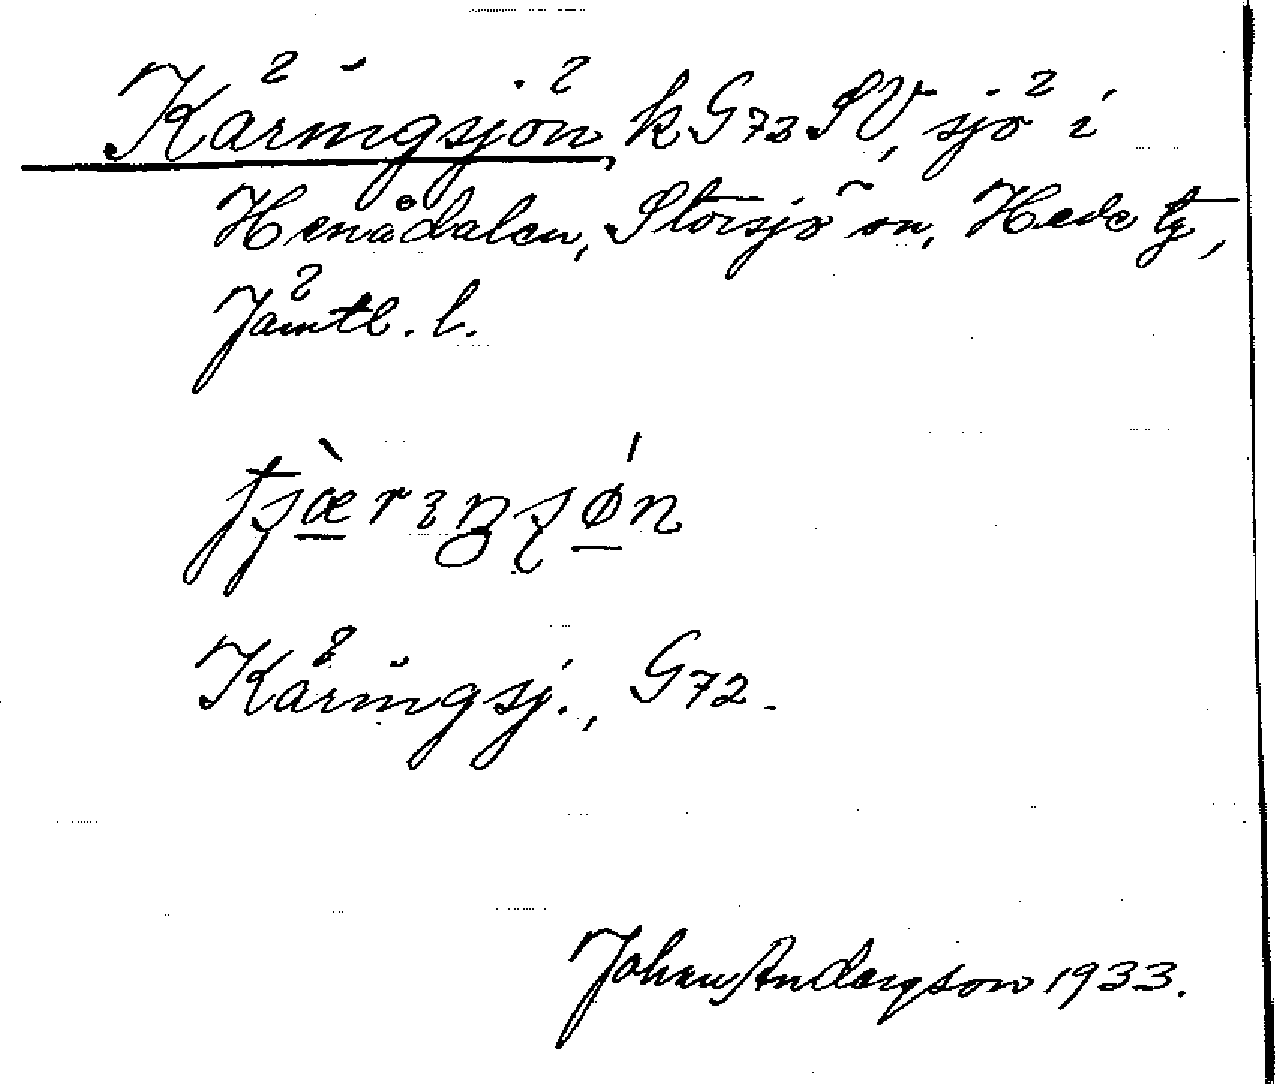 Käringsjön, k G73 SV, sjö i
Henådalen, Storsjö sn, Hede tg,
Jämtl. l.
Käringsj., G72.
Johan Andersson 1933.